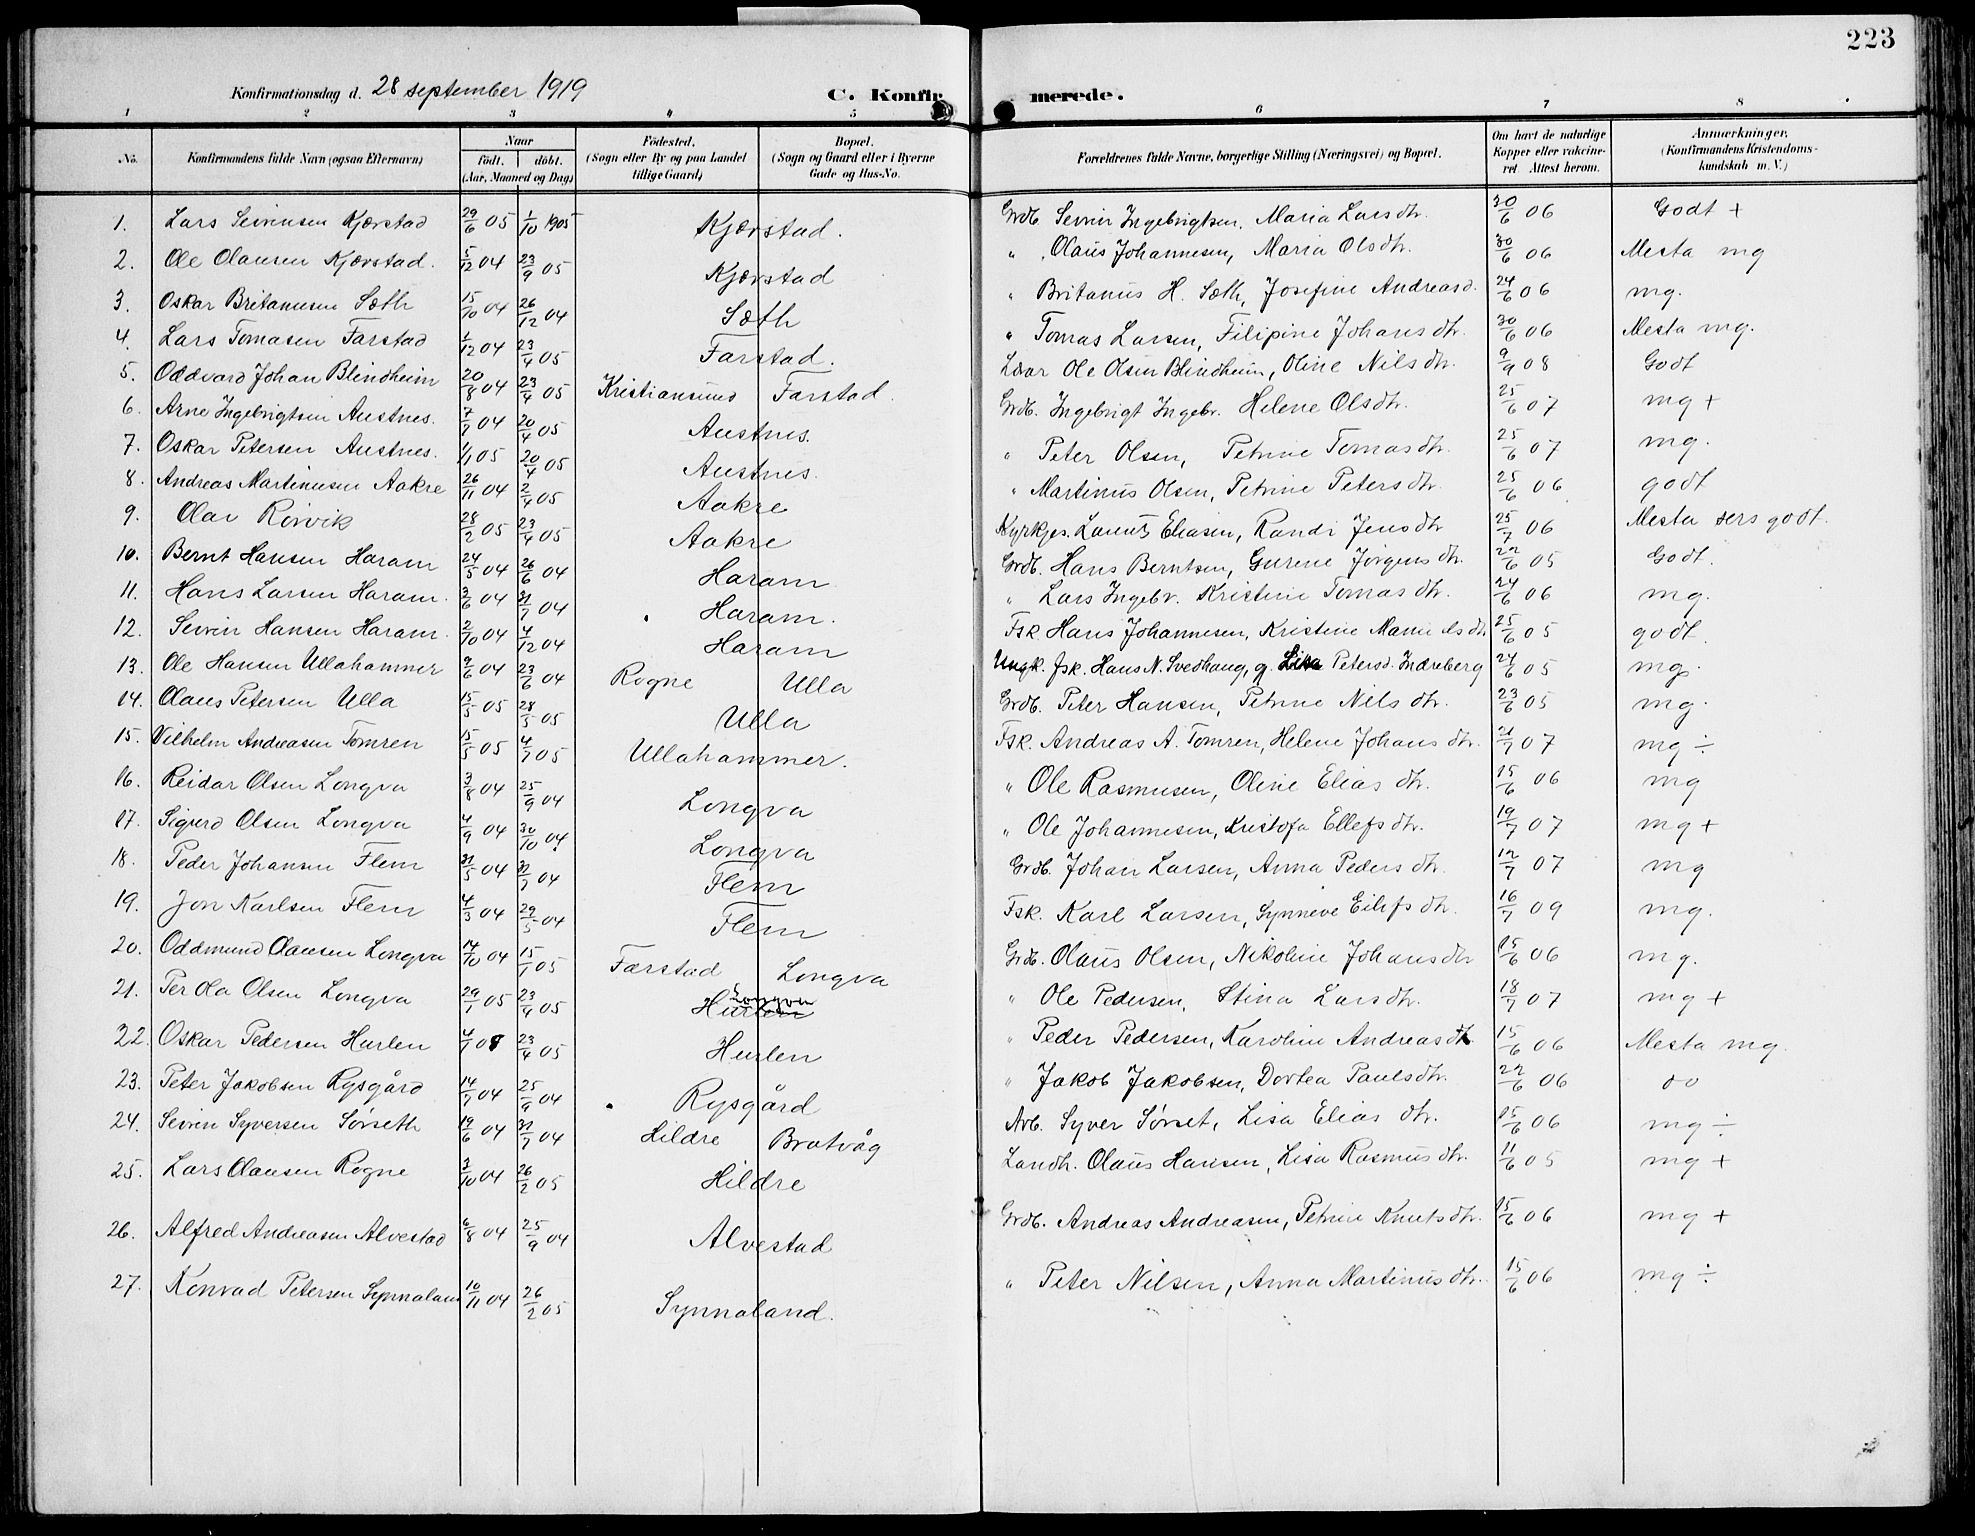 223
Konfirmationsdag d. 28 september 1919
C. Konfirmerede.
1 2 3 4 5 6 7 8
No. | Konfirmandens fulde Navn (ogsaa Efternavn) | Naar födt. döbt. (Aar, Maaned og Dag) | Födested. (Sogn eller By og paa Landet tillige Gaard) | Bopæl. (Sogn og Gaard eller i Byerne Gade og Hus-No. | Forældrenes fulde Navne, borgerlige Stilling (Næringsvei) og Bopæl. | Om havt de naturlige Kopper eller vakcineret Attest herom. | Anmærkninger. (Konfirmandens Kristendomskundskab m. V.)
1. Lars Seivensen Kjærstad 29/6 05 1/10 1905 Kjærstad. Grdb. Sevrin Ingebrigtsen, Maria Larsdtr. 30/6 06 Godt +
2. Ole Olausen Kjærstad. 5/12 04 23/9 05 Kjærstad " Olaus Johannesen, Maria Olsdtr. 30/6 06 Mesta mg
3. Oskar Britanusen Sæth 15/10 04 26/12 04 Sæth " Britanus H. Sæth, Josefine Andreasd. 24/6 06 mg.
4. Lars Tomasen Farstad 1/12 04 23/4 05 Farstad. " Tomas Larsen, Filipine Johansdtr. 30/6 06 Mesta mg.
5. Oddvard Johan Blindheim 20/8 04 23/4 05 Kristiansund Farstad. Lærar Ole Olsen Blindheim, Oline Nilsdtr. 9/9 08 Godt
6. Arne Ingebrigtsen Austnes. 7/7 04 20/4 05 Austnes. Grdb. Ingebrigt Ingebr. Helene Olsdtr. 25/6 07 mg +
7. Oskar Petersen Austnes. 1/1 05 20/4 05 Austnes. " Peter Olsen, Petrine Tomasdtr. 25/6 07 mg.
8. Andreas Martinusen Aakre 26/11 04 2/4 05 Aakre " Martinus Olsen, Petrine Petersdtr. 25/6 06 godt
9. Olav Rørvik 28/2 05 23/4 05 Aakre Kyrkjes. Laurits Eliasen, Randi Jensdtr 25/7 06 Mesta sers godt.
10. Bernt Hansen Haram 24/5 04 26/6 04 Haram Grdb. Hans Berntsen, Gurene Jørgensdtr. 22/6 05 Godt.
11. Hans Larsen Haram. 3/6 04 31/7 04 Haram. " Lars Ingebr. Kristine Tomasdtr. 24/6 06 mg.
12. Sevrin Hansen Haram. 2/10 04 4/12 04 Haram Fsk. Hans Johannesen, Kristine Manuelsdtr 25/6 05 godt
13. Ole Hansen Ullahammer 9/6 04 23/6 04 Rogne Ulla Ungk. fsk. Hans N. Svedhaug, g. Lisa Petersd. Indreberg 24/6 05 mg.
14. Olaus Petersen Ulla 15/5 05 28/5 05 Ulla Grdb. Peter Hansen, Petrine Nilsdtr. 23/6 05 mg.
15. Vilhelm Andreasen Tomren 15/5 05 4/7 05 Ullahammer. Fsk. Andreas A. Tomren, Helene Johansdtr. 21/7 07 mg ÷
16. Reidar Olsen Longva 3/8 04 25/9 04 Longva " Ole Rasmusen, Oline Eliasdtr. 15/6 06 mg
17. Sigurd Olsen Longva 4/9 04 30/10 04. Longva " Ole Johannesen, Kristofa Ellefsdtr. 19/7 07 mg +
18. Peder Johansen Flem 31/5 04 31/7 04 Flem Grdb. Johan Larsen, Anna Pedersdtr. 12/7 07 mg
19. Jon Karlsen Flem 4/3 04 29/5 04 Flem Fsk. Karl Larsen, Synneve Eilefsdtr. 16/7 09 mg.
20. Oddmund Olausen Longva 14/10 04 15/1 05 Farstad Longva Grdb. Olaus Olsen, Nikoline Johansdtr 15/6 06 mg.
21. Per Ola Olsen Longva 29/1 05 23/4 05 Hurlen Longva " Ole Pedersen, Stina Larsdtr. 18/7 07 mg +
22. Oskar Pedersen Hurlen 4/1 05 23/4 05 Hurlen " Peder Pedersen, Karoline Andreasdtr 15/6 06 Mesta mg.
23. Peter Jakobsen Rysgård 14/7 04 25/9 04 Rysgård " Jakob Jakobsen, Dortea Paulsdtr. 22/6 06 do
24. Sevrin Syversen Sørseth 19/6 04 31/7 04 Hildre Bratvåg Arb. Syver Sørset, Lisa Eliasdtr. 15/6 06 mg ÷
25. Lars Olausen Rogne 3/10 04 26/2 05 Hildre Landh. Olaus Hansen, Lisa Rasmusdtr. 11/6 05 mg +
26. Alfred Andreasen Alvestad 6/8 04 25/9 04 Alvestad Grdb. Andreas Andreasen, Petrine Knutsdtr. 15/6 06 mg +
27. Konrad Petersen Synnaland 10/11 04 26/2 05 Synnaland. " Peter Nilsen, Anna Martinusdtr. 15/6 06 mg ÷